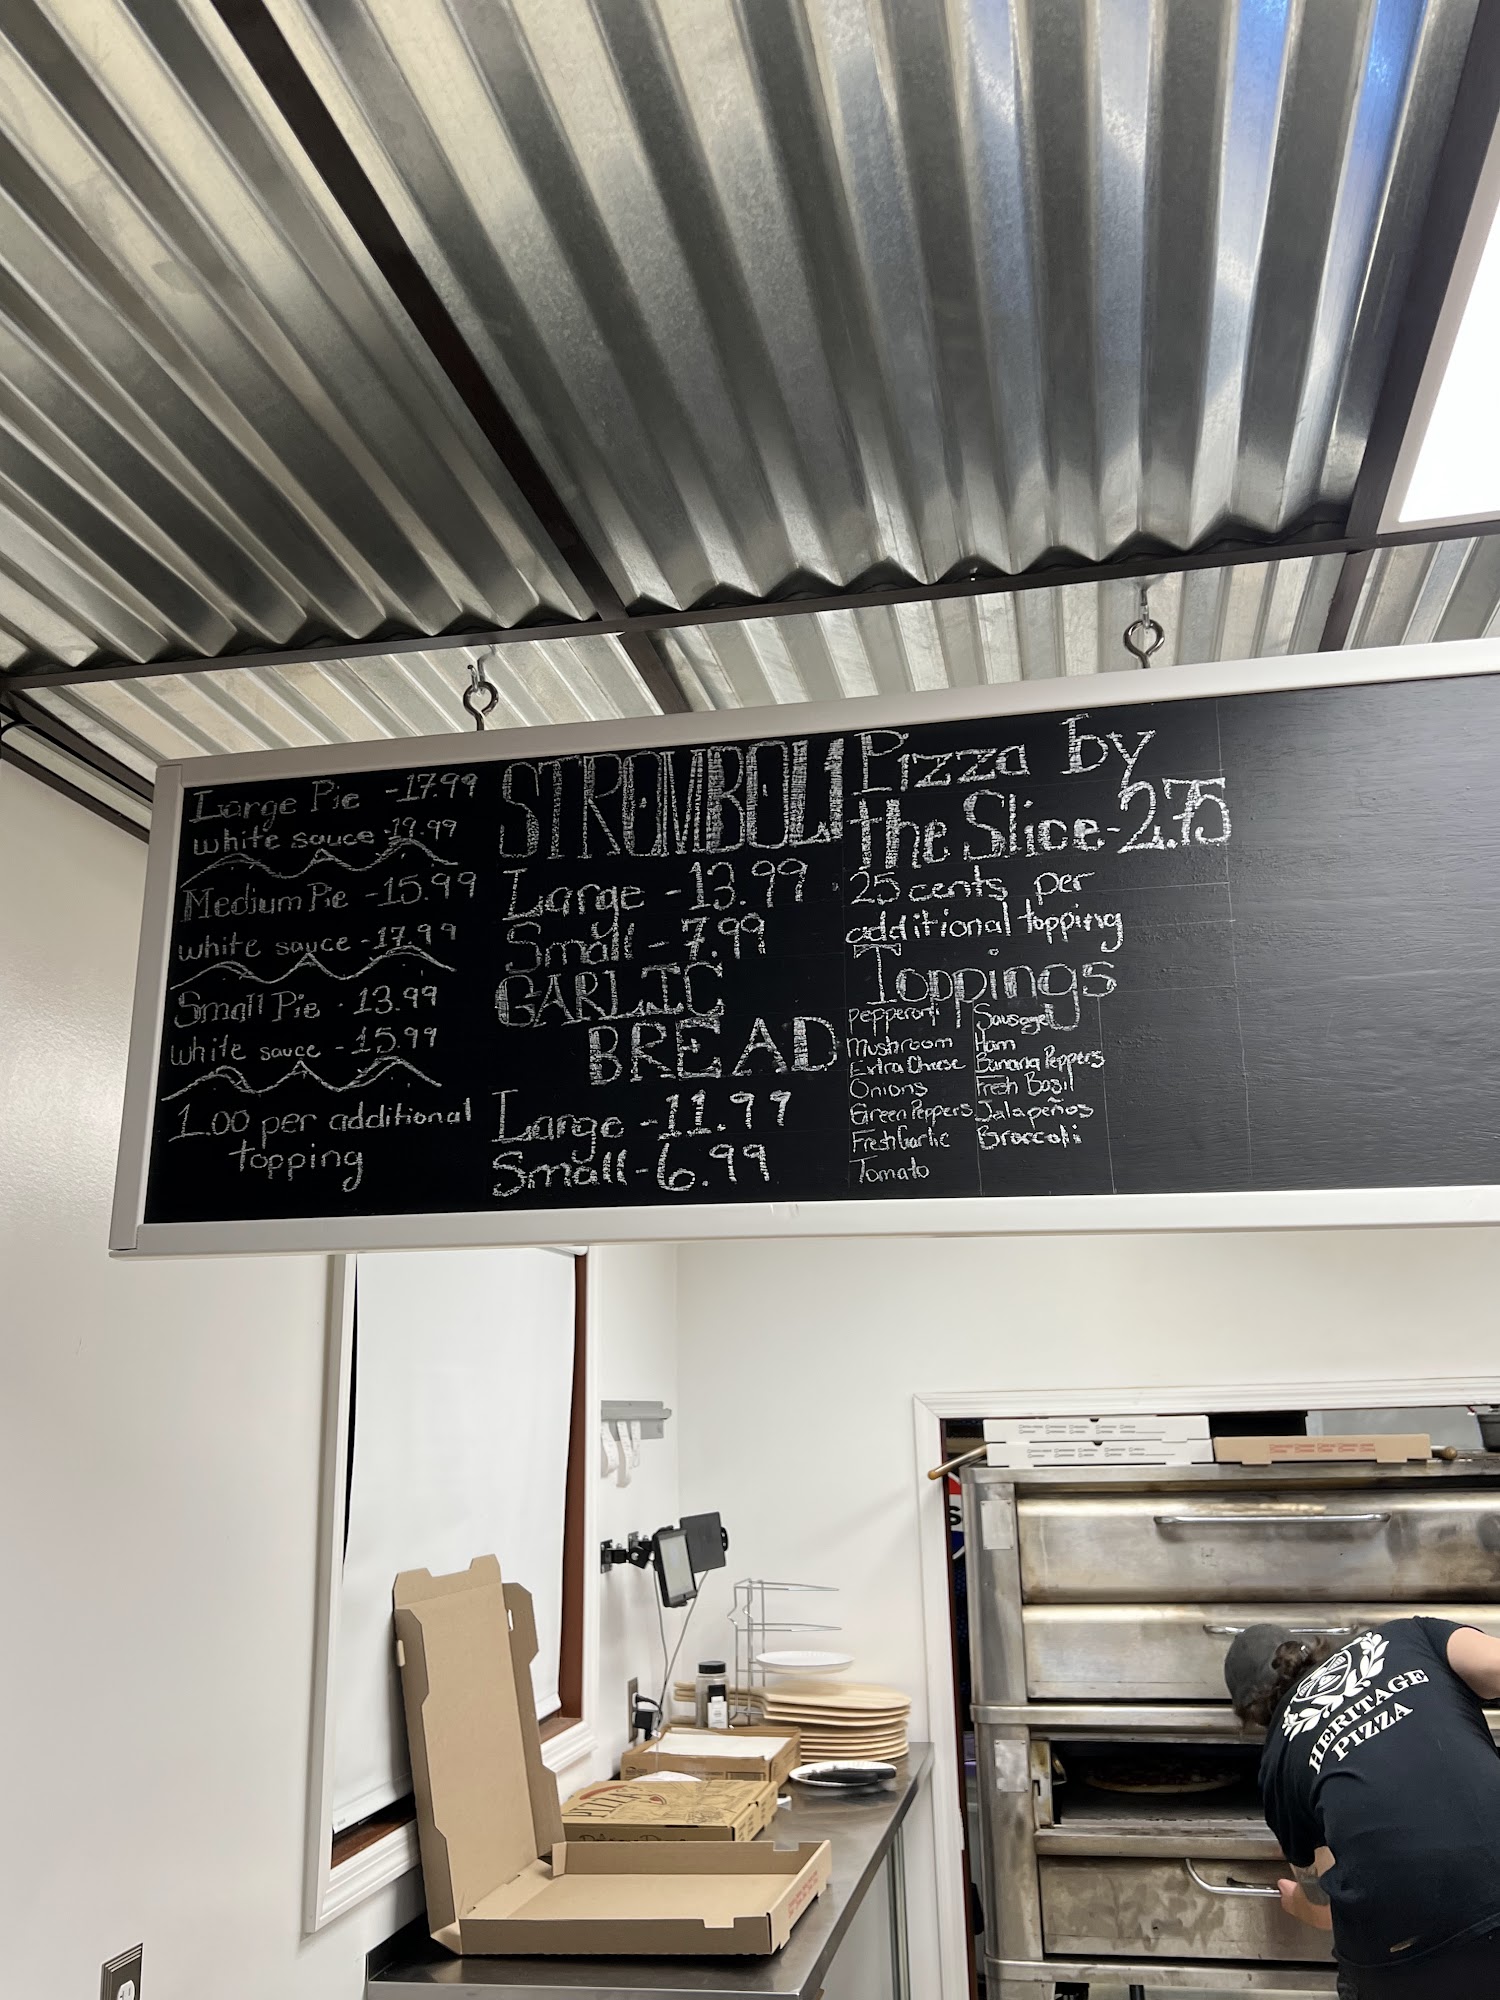 Large Pie - 17.99
white sauce - 19.99
Medium Pie - 15.99
white sauce - 17.99
Small Pie - 13.99
white sauce - 15.99
1.00 per additional
topping
STROMBOLI
Large - 13.99
Small - 7.99
GARLIC
BREAD
Large - 11.99
Small - 6.99
Pizza by
the Slice - 2.75
25 cents per
additional topping
Toppings
Pepperoni
Mushroom
Extra Cheese
Onions
Green Peppers
Fresh Garlic
Tomato
Sausage
Ham
Banana Peppers
Fresh Basil
Jalapeños
Broccoli
HERITAGE
PIZZA
PIZZA